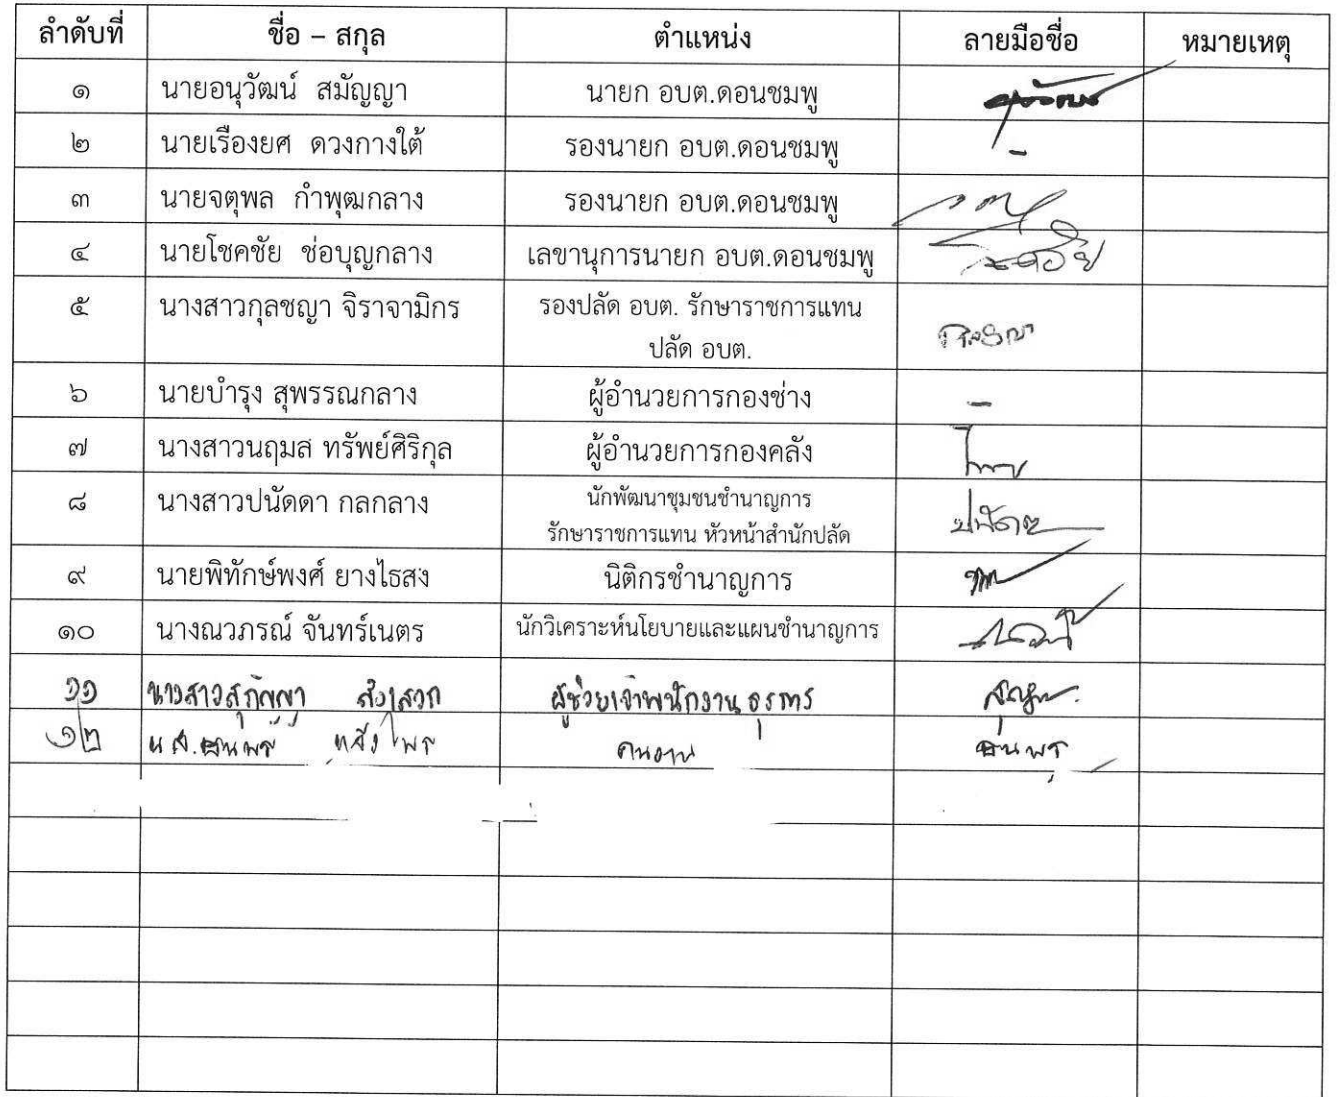 ลำดับที่ ชื่อ – สกุล ตำแหน่ง ลายมือชื่อ หมายเหตุ
๑ นายอนุวัฒน์ สมัญญา นายก อบต.ดอนชมพู
๒ นายเรืองยศ ดวงกางใต้ รองนายก อบต.ดอนชมพู -
๓ นายจตุพล กำพุฒกลาง รองนายก อบต.ดอนชมพู
๔ นายโชคชัย ช่อบุญกลาง เลขานุการนายก อบต.ดอนชมพู
๕ นางสาวกุลชญา จิราจามิกร รองปลัด อบต. รักษาราชการแทน
ปลัด อบต.
๖ นายบำรุง สุพรรณกลาง ผู้อำนวยการกองช่าง -
๗ นางสาวนฤมล ทรัพย์ศิริกุล ผู้อำนวยการกองคลัง
๘ นางสาวปนัดดา กลกลาง นักพัฒนาชุมชนชำนาญการ ปนัดดา
รักษาราชการแทน หัวหน้าสำนักปลัด
๙ นายพิทักษ์พงศ์ ยางไธสง นิติกรชำนาญการ
๑๐ นางณวภรณ์ จันทร์เนตร นักวิเคราะห์นโยบายและแผนชำนาญการ
๑๑ นางสาวสุกัญญา ผู้ช่วยเจ้าพนักงานธุรการ
๑๒ น.ส. คนงาน